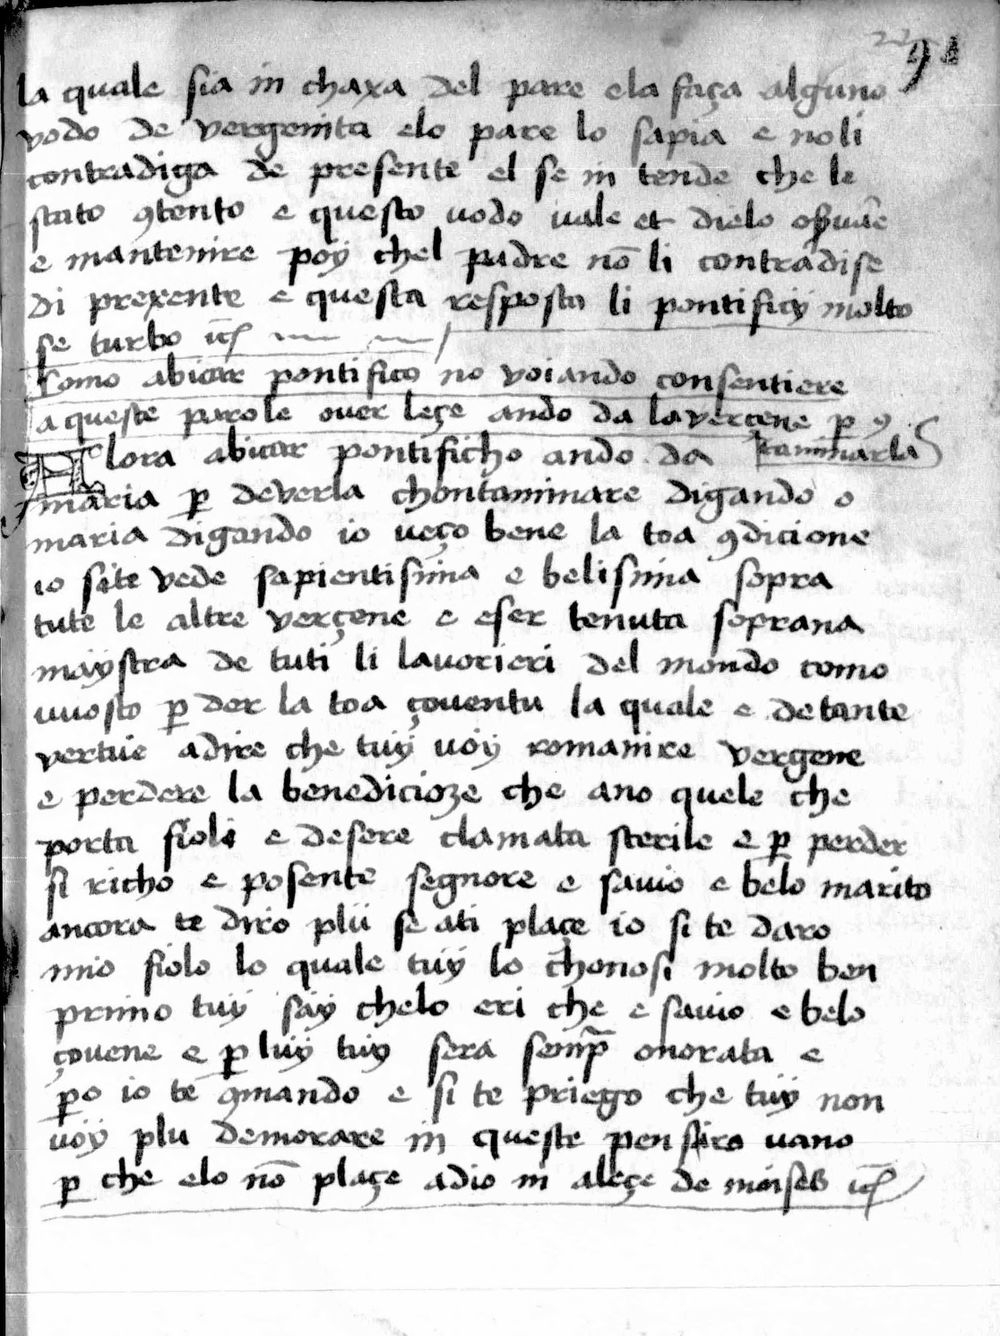 22 91
la quale sia in chaxa del pare ela faça alguno
vodo de vergenita elo pare lo sapia e no li
contradiga de presente el se in tende che le
stato ꝯtento e questo vodo vale et dielo
e mantenire poy chel padre nō li contradise
di prexente e questa resposta li pontificy molto
se turbo
Como abiatar pontifico no voiando consentiere
a queste parole over leçe ando da la verçene ꝑ ꝯ
taminarla
Alora abiatar pontificho ando da
maria ꝑ deverla chontaminare digando o
maria digando io veço bene la toa ꝯdicione
io si te vede sapientisima e belisima sopra
tute le altre verçene e eser tenuta soprana
maystra de tuti li lavorieri del mondo como
vuosto ꝑder la toa çoventu la quale e de tante
vertue adire che tuy voy romanire vergene
e perdere la benedicioze che ano quele che
porta fioli e desere clamata sterile e ꝑ perder
si richo e posente segnore e savio e belo marito
ancora te diro plu se ati plaçe io si te daro
mio fiolo lo quale tuy lo chonosi molto ben
primo tuy say chelo eri che e savio e belo
çovene e ꝑ luy tuy sera semꝑ onorata e
ꝑo io te ꝯmando e si te priego che tuy non
voy plu demorare in queste pensiro vano
ꝑ che elo nō plaçe adio in aleçe de moises